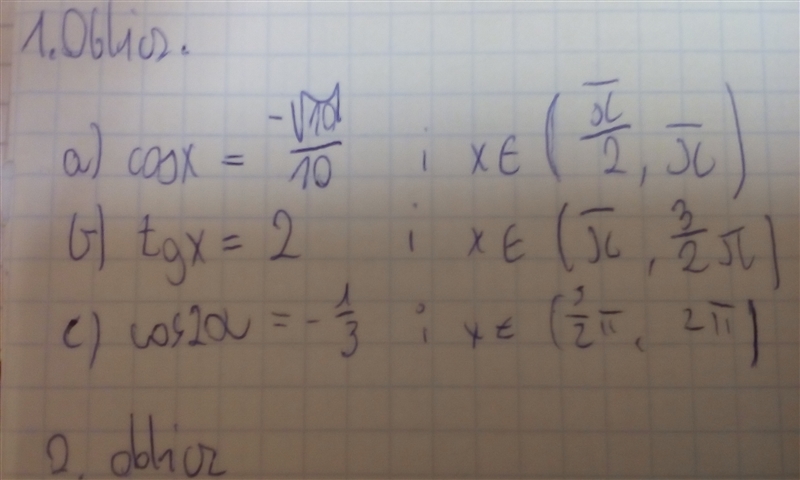 1. Oblicz.
a) cosx = -√10/10 i x∈ (π/2, π)
b) tgx = 2 i x∈ (π, 3/2 π)
c) cos2α = -1/3 i x∈ (3/2 π, 2π)
2. oblicz